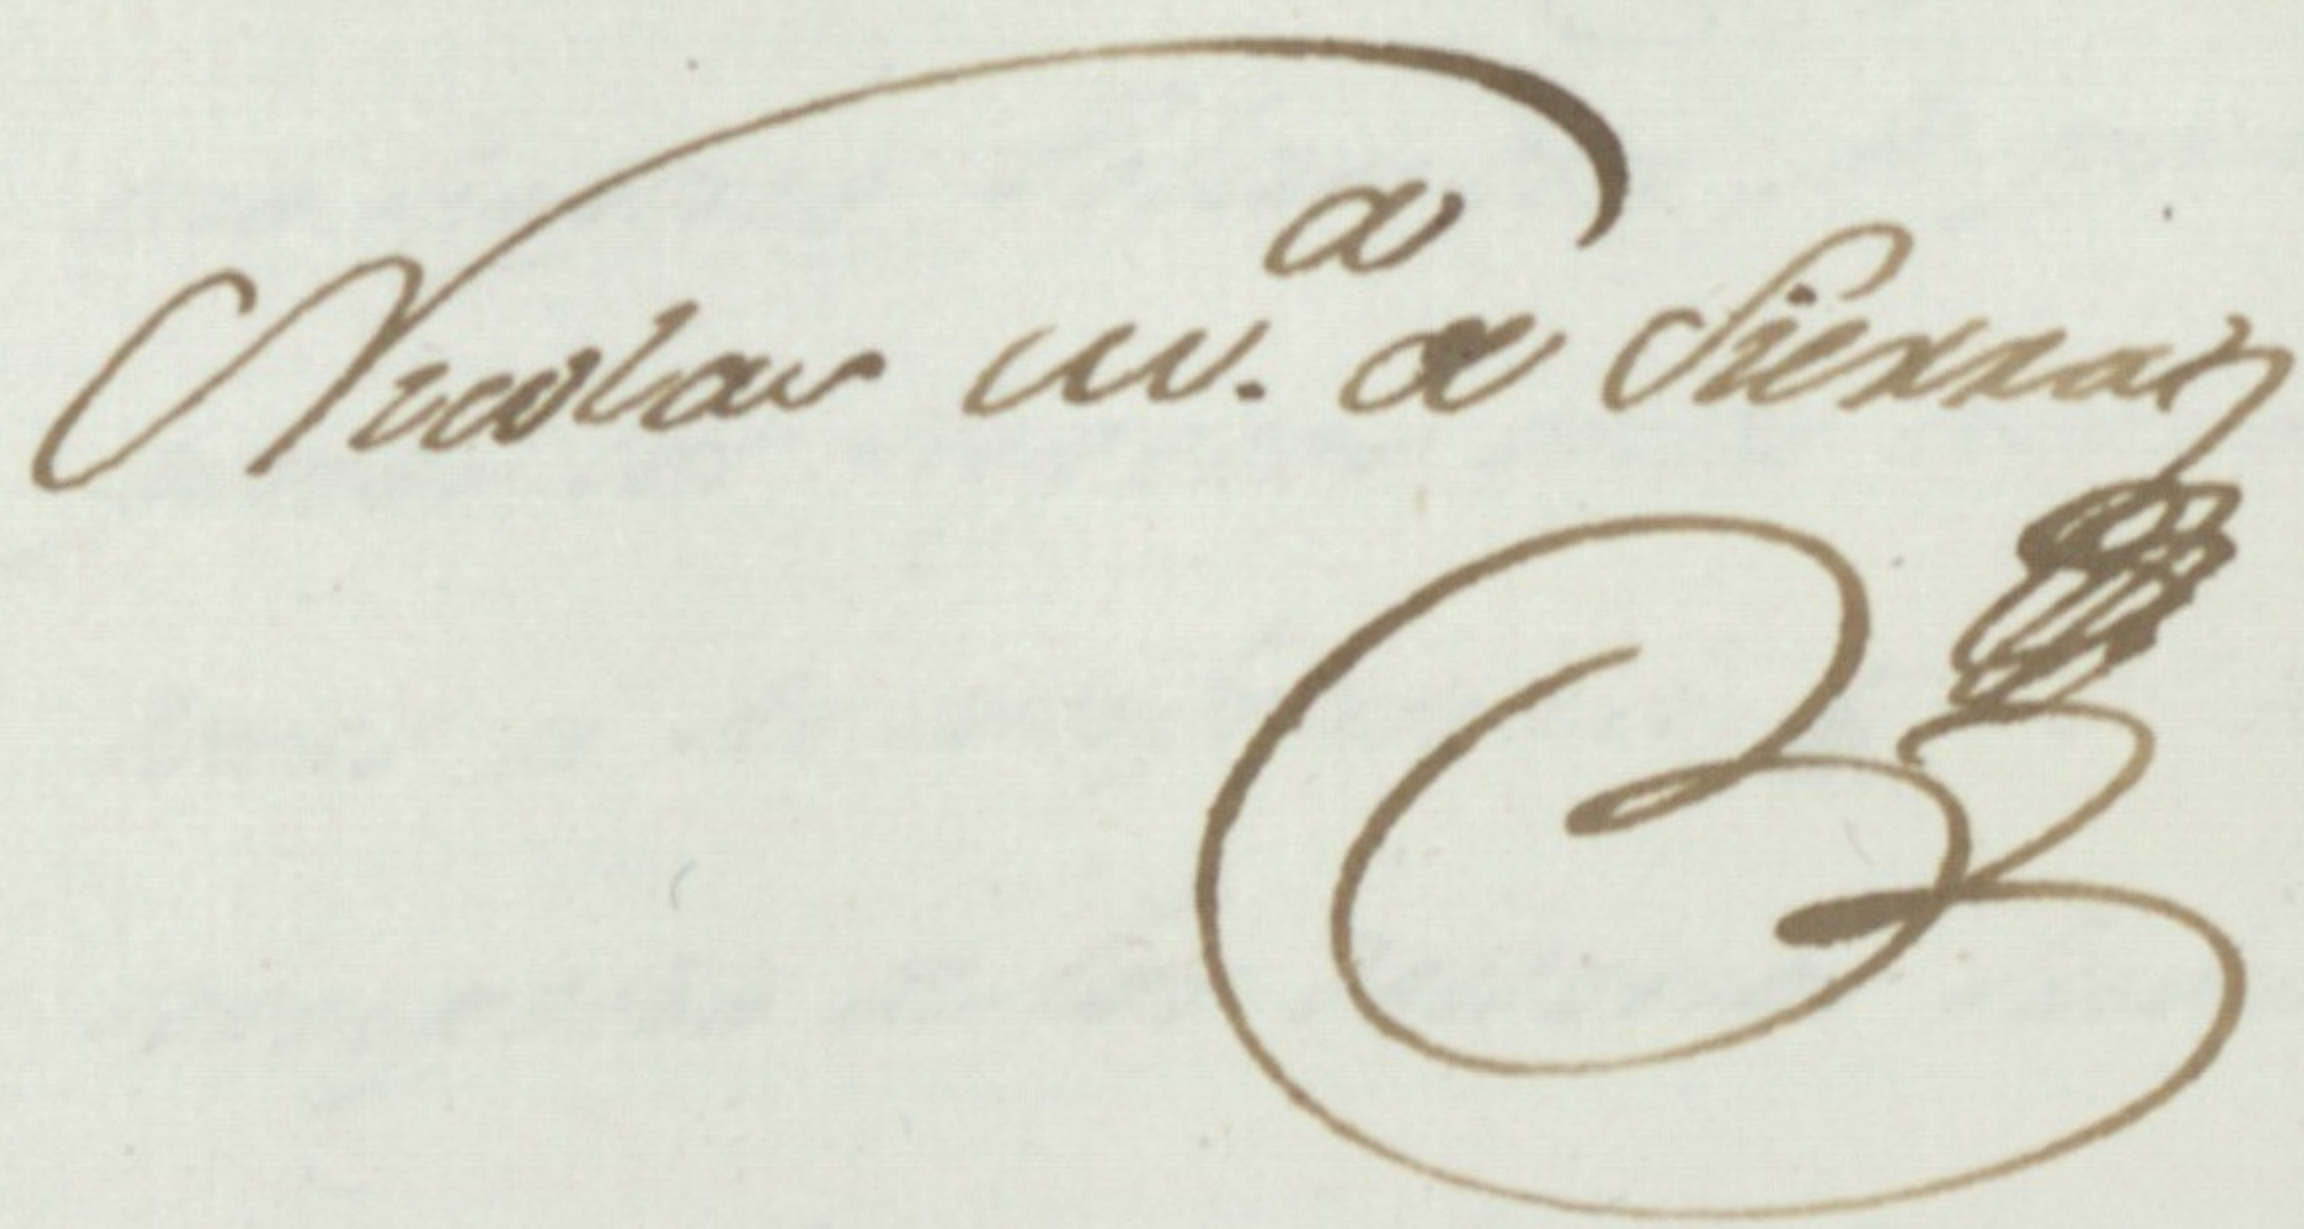 Nicolas M.ª de Sierra